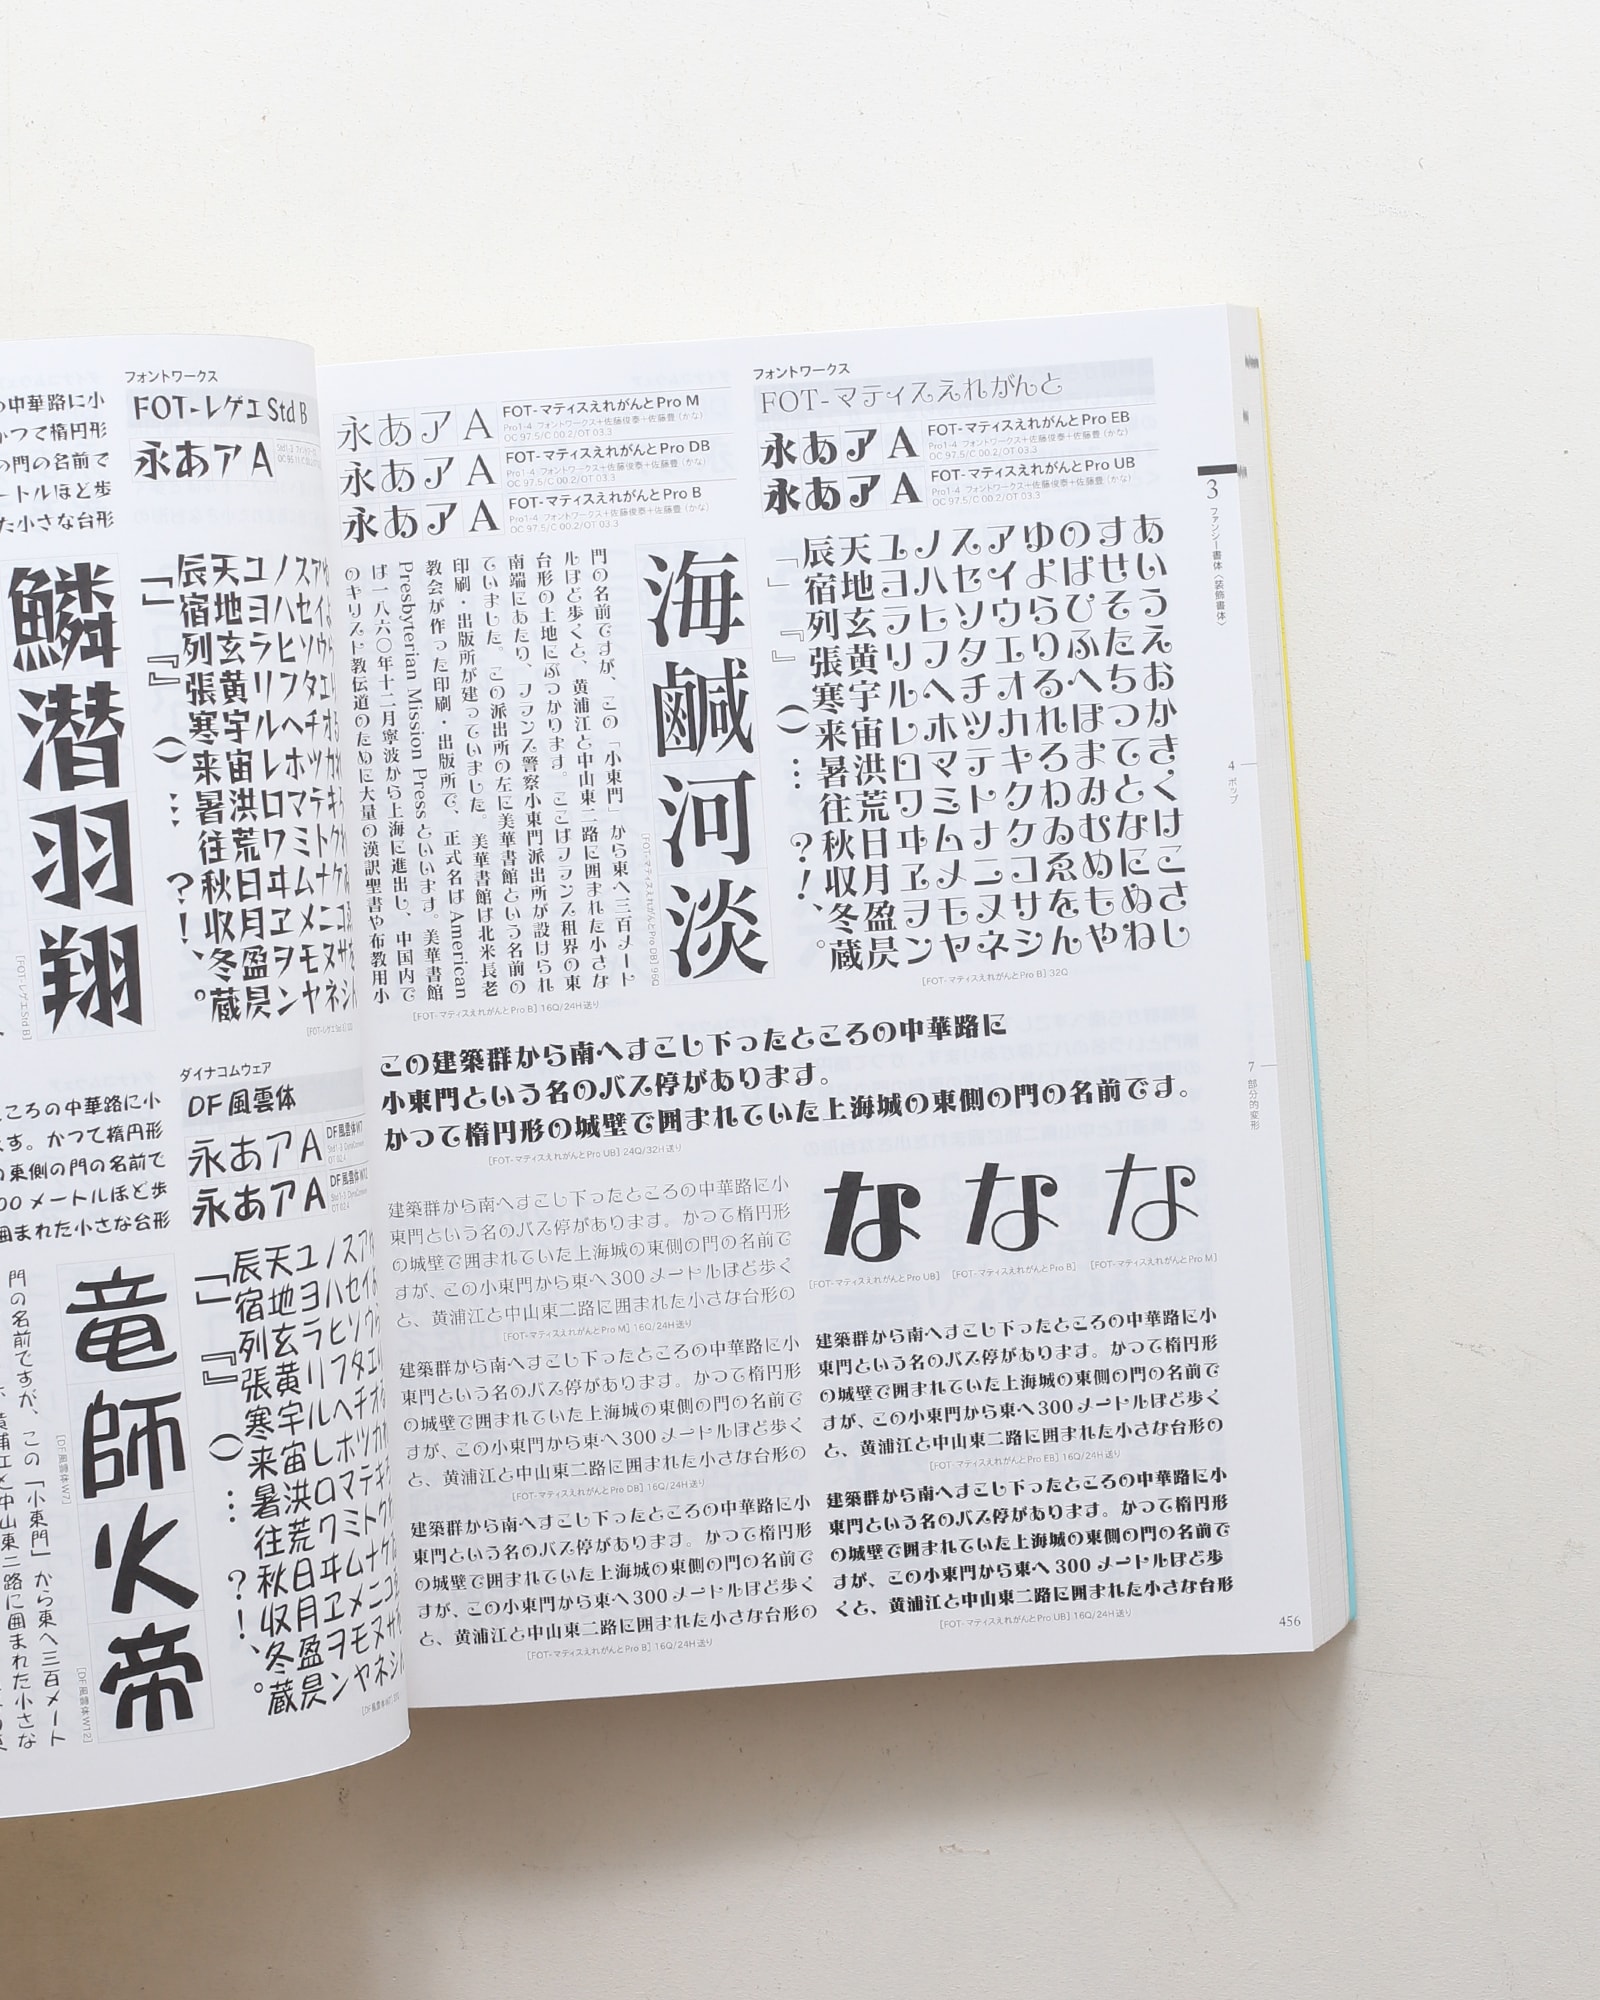 の中華路に小
かつて楕円形
の門の名前で
ートルほど歩
た小さな台形
フォントワークス
FOT-レゲエ Std B
永あア A
鱗潜羽翔
[FOT-レゲエ Std B]
天地玄黄宇宙洪荒日月盈昃
辰宿列張寒来暑往秋収冬蔵
「」『』()…?!、。
ころの中華路に小
ます。かつて楕円形
の東側の門の名前で
00メートルほど歩
囲まれた小さな台形
ダイナコムウェア
DF風雲体
永あアA
DF風雲体W7
永あアA
DF風雲体W12
天地玄黄宇宙洪荒日月盈昃
辰宿列張寒来暑往秋収冬蔵
「」『』()…?!、。
竜師火帝
[DF風雲体W7]
[DF風雲体W12]
門の名前ですが、この「小東門」から東へ三百メート
フォントワークス
FOT-マティスえれがんと
永あア A
FOT-マティスえれがんとPro M
Pro1-4 フォントワークス+佐藤俊泰+佐藤豊(かな)
OC 97.5/C 00.2/OT 03.3
永あア A
FOT-マティスえれがんとPro DB
Pro1-4 フォントワークス+佐藤俊泰+佐藤豊(かな)
OC 97.5/C 00.2/OT 03.3
永あア A
FOT-マティスえれがんとPro B
Pro1-4 フォントワークス+佐藤俊泰+佐藤豊(かな)
OC 97.5/C 00.2/OT 03.3
永あア A
FOT-マティスえれがんとPro EB
Pro1-4 フォントワークス+佐藤俊泰+佐藤豊(かな)
OC 97.5/C 00.2/OT 03.3
永あア A
FOT-マティスえれがんとPro UB
Pro1-4 フォントワークス+佐藤俊泰+佐藤豊(かな)
OC 97.5/C 00.2/OT 03.3
あいうえおかきくけこさし
すせそたちつてとなにぬね
のはひふへほまみむめもや
ゆよらりるれろわゐゑをん
アイウエオカキクケコサシ
スセソタチツテトナニヌネ
ノハヒフヘホマミムメモヤ
ユヨラリルレロワヰヱヲン
天地玄黄宇宙洪荒日月盈昃
辰宿列張寒来暑往秋収冬蔵
「」『』()…?!、。
[FOT-マティスえれがんとPro B] 32Q
海鹹河淡
[FOT-マティスえれがんとPro DB] 96Q
門の名前ですが、この「小東門」から東へ三百メート
ルほど歩くと、黄浦江と中山東二路に囲まれた小さな
台形の土地にぶつかります。ここはフランス租界の東
南端にあたり、フランス警察小東門派出所が設けられ
ていました。この派出所の左に美華書館という名前の
印刷・出版所が建っていました。美華書館は北米長老
教会が作った印刷・出版所で、正式名は American
Presbyterian Mission Press といいます。美華書館
は一八六〇年十二月寧波から上海に進出し、中国内で
のキリスト教伝道のために大量の漢訳聖書や布教用小
[FOT-マティスえれがんとPro B] 16Q/24H送り
この建築群から南へすこし下ったところの中華路に
小東門という名のバス停があります。
かつて楕円形の城壁で囲まれていた上海城の東側の門の名前です。
[FOT-マティスえれがんとPro UB] 24Q/32H送り
建築群から南へすこし下ったところの中華路に小
東門という名のバス停があります。かつて楕円形
の城壁で囲まれていた上海城の東側の門の名前で
すが、この小東門から東へ300メートルほど歩く
と、黄浦江と中山東二路に囲まれた小さな台形の
[FOT-マティスえれがんとPro M] 16Q/24H送り
建築群から南へすこし下ったところの中華路に小
東門という名のバス停があります。かつて楕円形
の城壁で囲まれていた上海城の東側の門の名前で
すが、この小東門から東へ300メートルほど歩く
と、黄浦江と中山東二路に囲まれた小さな台形の
[FOT-マティスえれがんとPro DB] 16Q/24H送り
建築群から南へすこし下ったところの中華路に小
東門という名のバス停があります。かつて楕円形
の城壁で囲まれていた上海城の東側の門の名前で
すが、この小東門から東へ300メートルほど歩く
と、黄浦江と中山東二路に囲まれた小さな台形の
[FOT-マティスえれがんとPro B] 16Q/24H送り
な な な
[FOT-マティスえれがんとPro UB] [FOT-マティスえれがんとPro B] [FOT-マティスえれがんとPro M]
建築群から南へすこし下ったところの中華路に小
東門という名のバス停があります。かつて楕円形
の城壁で囲まれていた上海城の東側の門の名前で
すが、この小東門から東へ300メートルほど歩く
と、黄浦江と中山東二路に囲まれた小さな台形の
[FOT-マティスえれがんとPro EB] 16Q/24H送り
建築群から南へすこし下ったところの中華路に小
東門という名のバス停があります。かつて楕円形
の城壁で囲まれていた上海城の東側の門の名前で
すが、この小東門から東へ300メートルほど歩
くと、黄浦江と中山東二路に囲まれた小さな台形
[FOT-マティスえれがんとPro UB] 16Q/24H送り
3 ファンシー書体〈装飾書体〉
4 ポップ
7 部分的変形
456